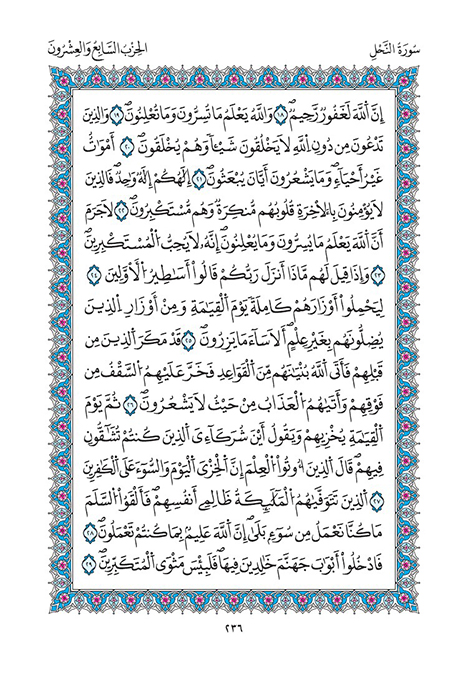 سُورَةُ النَّحْلِ
الحِزْبُ السَّابِعُ وَالعِشْرُونَ
إِنَّ اَللَّهَ لَغَفُورٌ رَّحِيمٌ ١٨ وَاللَّهُ يَعْلَمُ مَا تُسِرُّونَ وَمَا تُعْلِنُونَ ١٩ وَالذِينَ
تَدْعُونَ مِن دُونِ اِللَّهِ لَا يَخْلُقُونَ شَيْـٔاً وَهُمْ يُخْلَقُونَ ٢٠ أَمْوَٰتٌ
غَيْرُ أَحْيَآءٍ وَمَا يَشْعُرُونَ أَيَّانَ يُبْعَثُونَ ٢١ إِلَٰهُكُمْ إِلَٰهٌ وَٰحِدٌ فَالذِينَ
لَا يُومِنُونَ بِالَاخِرَةِ قُلُوبُهُم مُّنكِرَةٌ وَهُم مُّسْتَكْبِرُونَ ٢٢ لَا جَرَمَ
أَنَّ اَللَّهَ يَعْلَمُ مَا يُسِرُّونَ وَمَا يُعْلِنُونَ إِنَّهُۥ لَا يُحِبُّ اُلْمُسْتَكْبِرِينَ
٢٣ وَإِذَا قِيلَ لَهُم مَّاذَا أَنزَلَ رَبُّكُمْ قَالُوا أَسَٰطِيرُ اُلَاوَّلِينَ ٢٤
لِيَحْمِلُوا أَوْزَارَهُمْ كَامِلَةً يَوْمَ اَلْقِيَٰمَةِ وَمِنَ اَوْزَارِ اِلذِينَ
يُضِلُّونَهُم بِغَيْرِ عِلْمٍ أَلَا سَآءَ مَا يَزِرُونَ ٢٥ قَدْ مَكَرَ اَلذِينَ مِن
قَبْلِهِمْ فَأَتَى اَللَّهُ بُنْيَٰنَهُم مِّنَ اَلْقَوَاعِدِ فَخَرَّ عَلَيْهِمُ اُلسَّقْفُ مِن
فَوْقِهِمْ وَأَتَىٰهُمُ اُلْعَذَابُ مِنْ حَيْثُ لَا يَشْعُرُونَ ٢٦ ثُمَّ يَوْمَ
اَلْقِيَٰمَةِ يُخْزِيهِمْ وَيَقُولُ أَيْنَ شُرَكَآءِيَ اَلذِينَ كُنتُمْ تُشَٰٓقُّونِ
فِيهِمْ قَالَ اَلذِينَ أُوتُوا اُلْعِلْمَ إِنَّ اَلْخِزْيَ اَلْيَوْمَ وَالسُّوٓءَ عَلَى اَلْكَٰفِرِينَ
٢٧ اَلذِينَ تَتَوَفَّىٰهُمُ اُلْمَلَٰٓئِكَةُ ظَالِمِے أَنفُسِهِمْ فَأَلْقَوُا اُلسَّلَمَ
مَا كُنَّا نَعْمَلُ مِن سُوٓءٍ بَلَىٰ إِنَّ اَللَّهَ عَلِيمٌ بِمَا كُنتُمْ تَعْمَلُونَ ٢٨
فَادْخُلُوا أَبْوَٰبَ جَهَنَّمَ خَٰلِدِينَ فِيهَا فَلَبِيسَ مَثْوَى اَلْمُتَكَبِّرِينَ ٢٩
٢٣٦